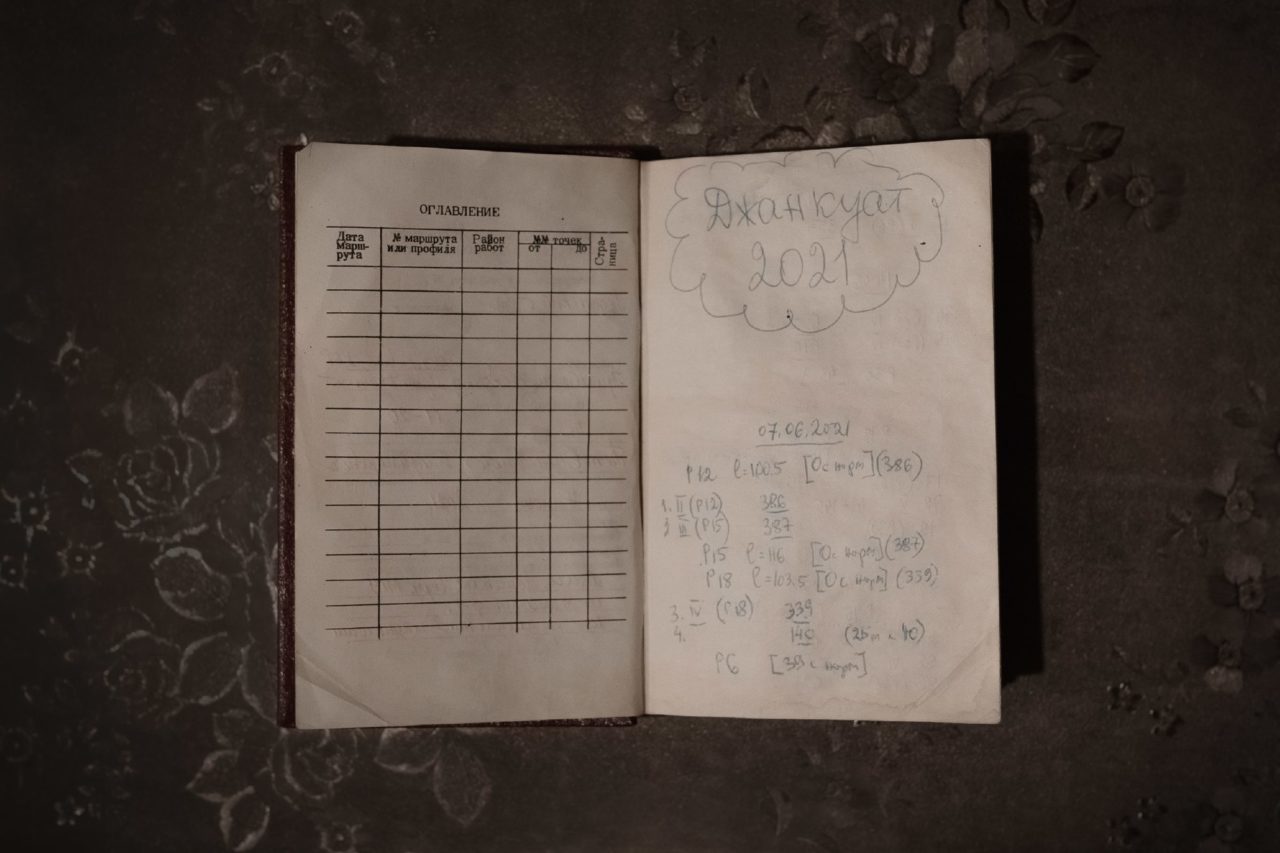 ОГЛАВЛЕНИЕ
Дата марш-рута № маршрута или профиля Район работ №№ точек от до Стра-ница
Джанкуат
2021
07.06.2021
P12 l=100.5 (386)
1. II (P12) 386
3 III (P15) 387
P15 l=116 [0 с норт] (387)
P18 l=103.5 [0 с норт] (339)
3. IV (P18) 339
4. 140
P6